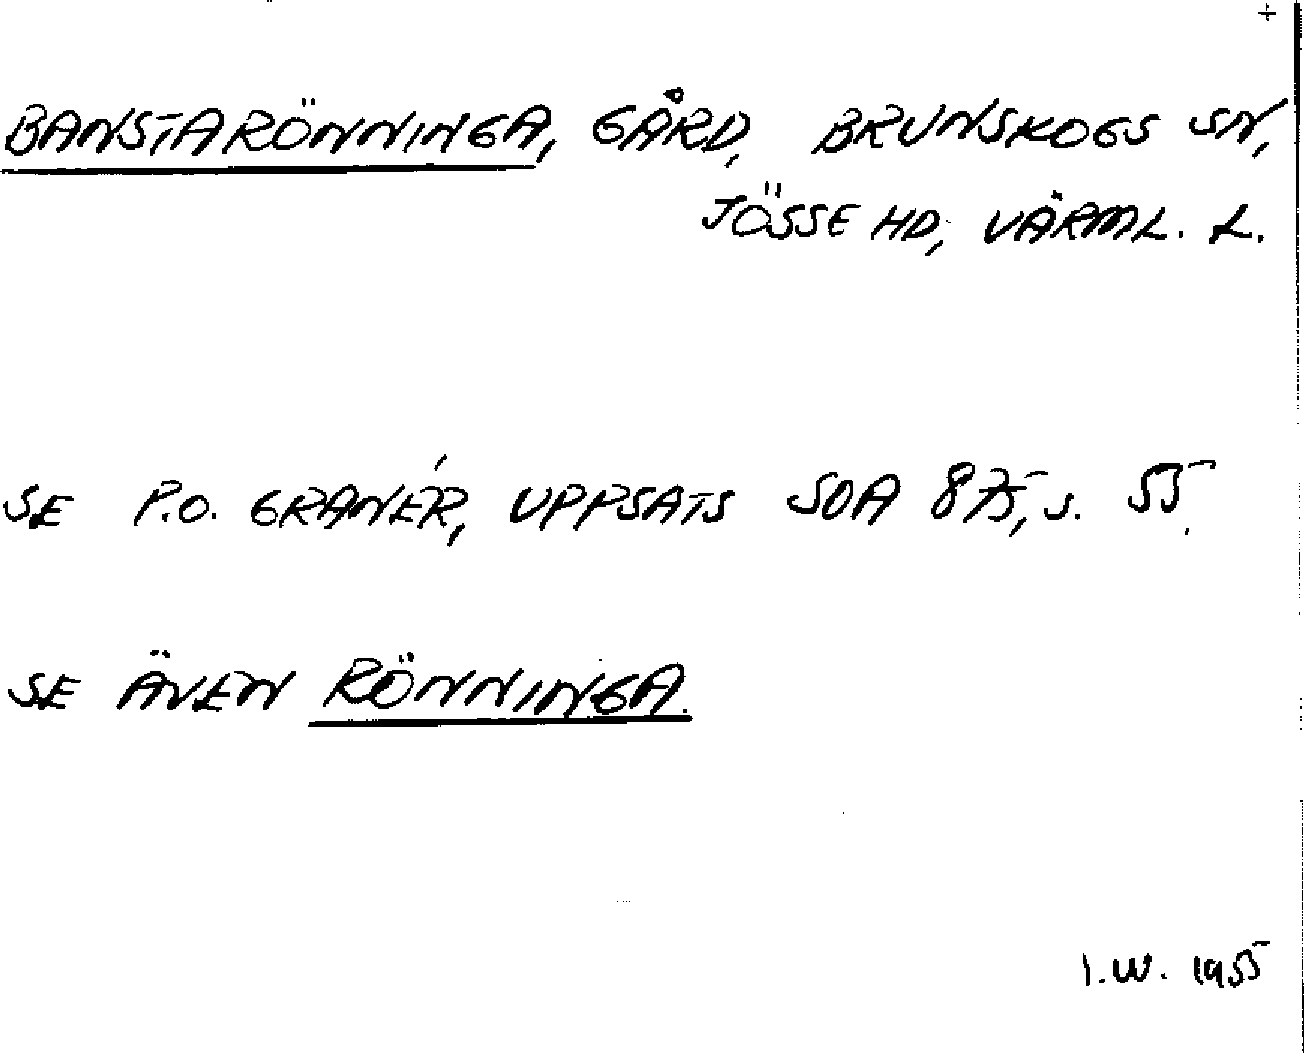 BANSTARÖNNINGA, GÅRD, BRUNSKOGS SN,
JÖSSE HD, VÄRML. L.
SE P.O. GRANÉR, UPPSATS SOA 875, S. 55.
SE ÄVEN RÖNNINGA.
I.W. 1955